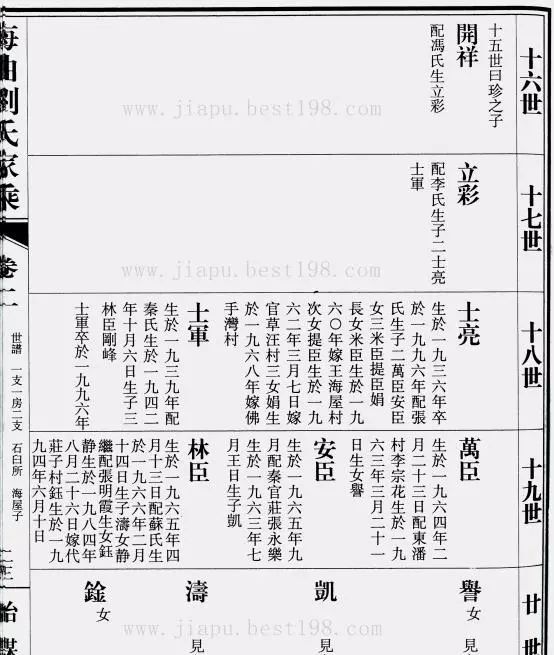 十六世
十五世曰珍之子
開祥
配馮氏生立彩
十七世
立彩
配李氏生子二士亮
士軍
十八世
士亮
生於一九三六年卒
於一九九六年配張
氏生子二萬臣安臣
女三米臣提臣娟
長女米臣生於一九
六〇年嫁王海屋村
次女提臣生於一九
六二年三月七日嫁
官草汪村三女娟生
於一九六八年嫁佛
手灣村
士軍
生於一九三九年配
秦氏生於一九四二
年十月六日生子三
林臣剛峰
士軍卒於一九九六年
十九世
萬臣
生於一九六四年二
月二十三日配東潘
村李宗花生於一九
六三年三月二十一
日生女譽
安臣
生於一九六五年九
月配秦官莊張永樂
生於一九六三年七
月王日生子凱
林臣
生於一九六五年四
月十三日配蘇氏生
於一九六六年二月
十四日生子濤女静
繼配張明霞生女鈺
静生於一九八四年
八月二十六日嫁代
莊子村鈺生於一九
九四年六月十日
廿世
譽 女 見
凱 見
濤 見
銓 女
海曲劉氏家乘
卷二
世譜 一支一房二支 石臼所 海屋子
二三
www.jiapu.best198.com
www.jiapu.best198.com
www.jiapu.best198.com